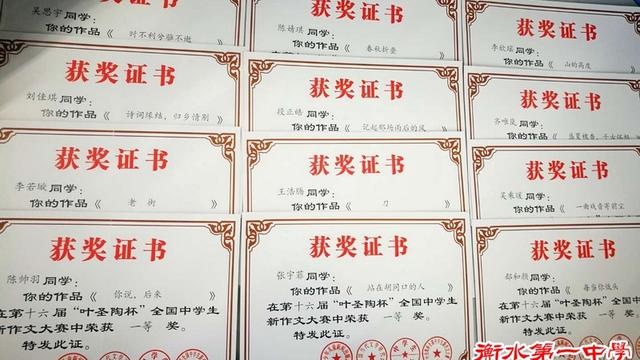 吴思宇同学：
你的作品《时不利兮骓不逝
陈婧琪同学：
你的作品《春秋折叠
李欣瑶同学：
你的作品《山的高度
获奖证书
刘佳琪同学：
你的作品《诗词缘结，归乡情别》
获奖证书
段正皓同学：
你的作品《记起那场雨后的风
获奖证书
齐唯俊同学：
你的作品《
获奖证书
李若璇同学：
你的作品《老街
获奖证书
王浩旸同学：
你的作品《刀
获奖证书
吴秉谖同学：
你的作品《一曲戏音寄前尘
获奖证书
陈帅羽同学：
你的作品《你说，后来
在第十六届“叶圣陶杯”全国中学生
新作文大赛中荣获 一等 奖。
特发此证。
获奖证书
张宇菲同学：
你的作品《站在胡同口的人》
在第十六届“叶圣陶杯”全国中学生
新作文大赛中荣获 一等 奖。
特发此证。
获奖证书
郜和颜同学：
你的作品《每当你低头
在第十六届“叶圣陶杯”全国中学生
新作文大赛中荣获 一等 奖。
特发此证。
衡水第一中學